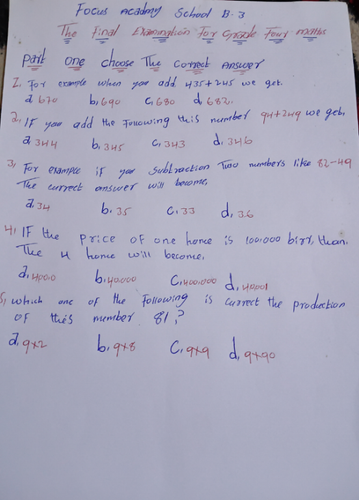 Focus Academy School B-3
The Final Examination For Grade Four maths
Part one choose The correct Answer
1. For example when you add 435+245 we get.
a, 670 b, 690 c, 680 d, 682,
2. IF you add the Following this number 94+249 we get,
a, 344 b, 345 c, 343 d, 346
3, For example if you Subtraction Two numbers like 82-49
The currect answer will become,
a, 34 b, 35 c, 33 d, 36
4, IF the price of one home is 100,000 birr, than.
The 4 home will become,
a, 4000 b, 40,000 c, 400,000 d, 40001
5, which one of the Following is currect the production
of this number 81,?
a, 9x2 b, 9x8 c, 9x9 d, 9x90